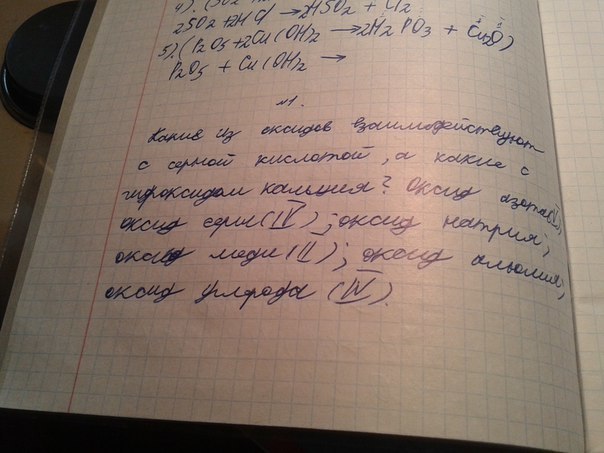 2SO2+2HCl →2HSO2 + Cl2
5).(P2O5+2Cu(OH)2 →2H2PO3 + Cu2O)
P2O5 + Cu(OH)2 →
№1.
Какие из оксидов взаимодействуют
с серной кислотой, а какие с
гидроксидом кальция? Оксид азота
оксид серы (IV); оксид натрия;
оксид меди (II); оксид алюмия;
оксид углерода (IV).